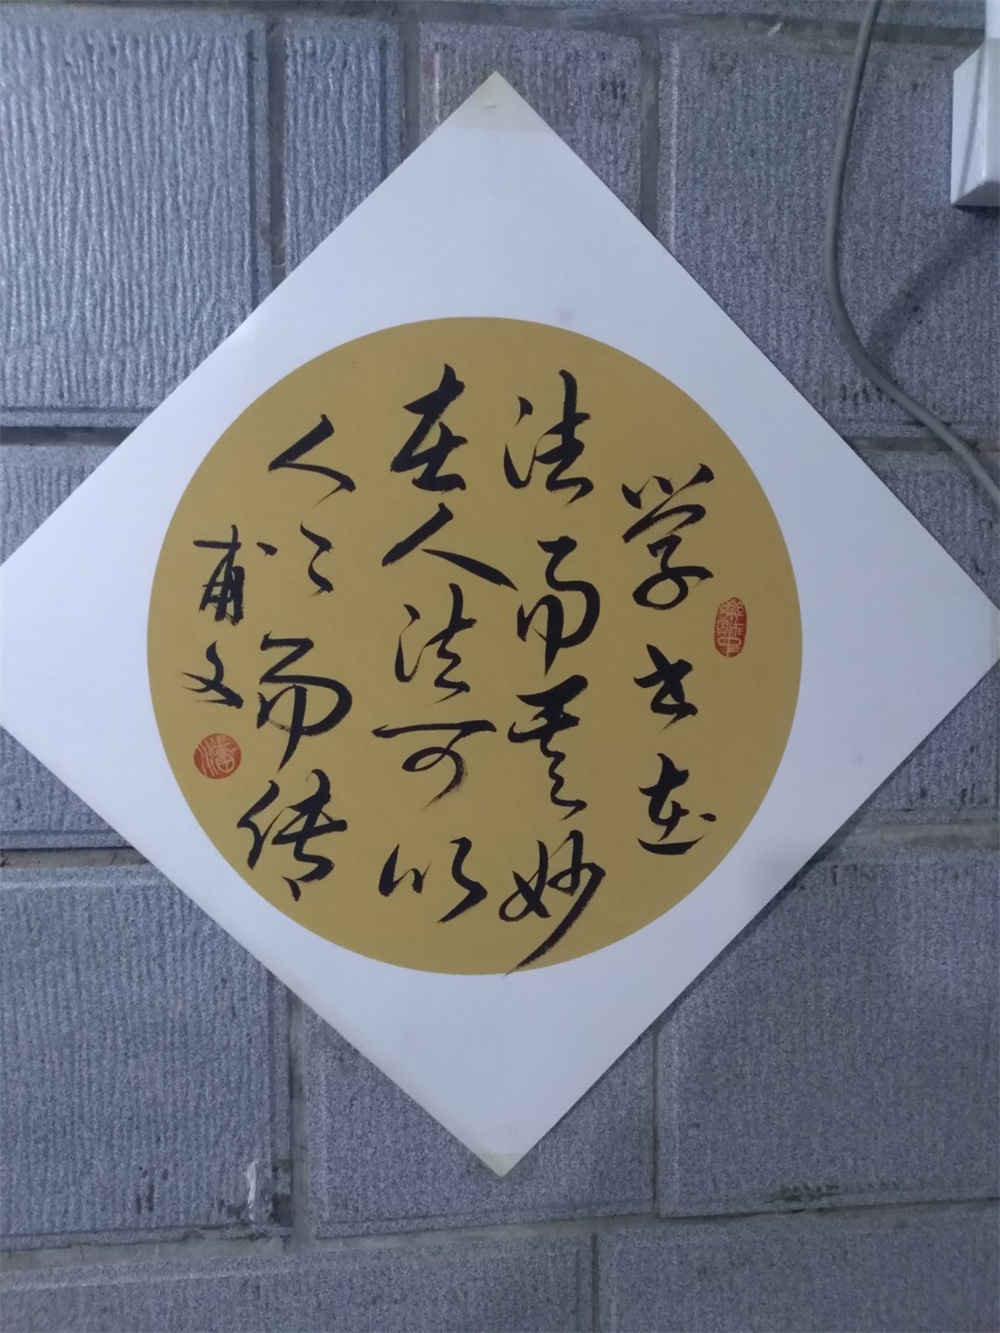 学书在
法而其妙
在人法可以
人人而传
甫文